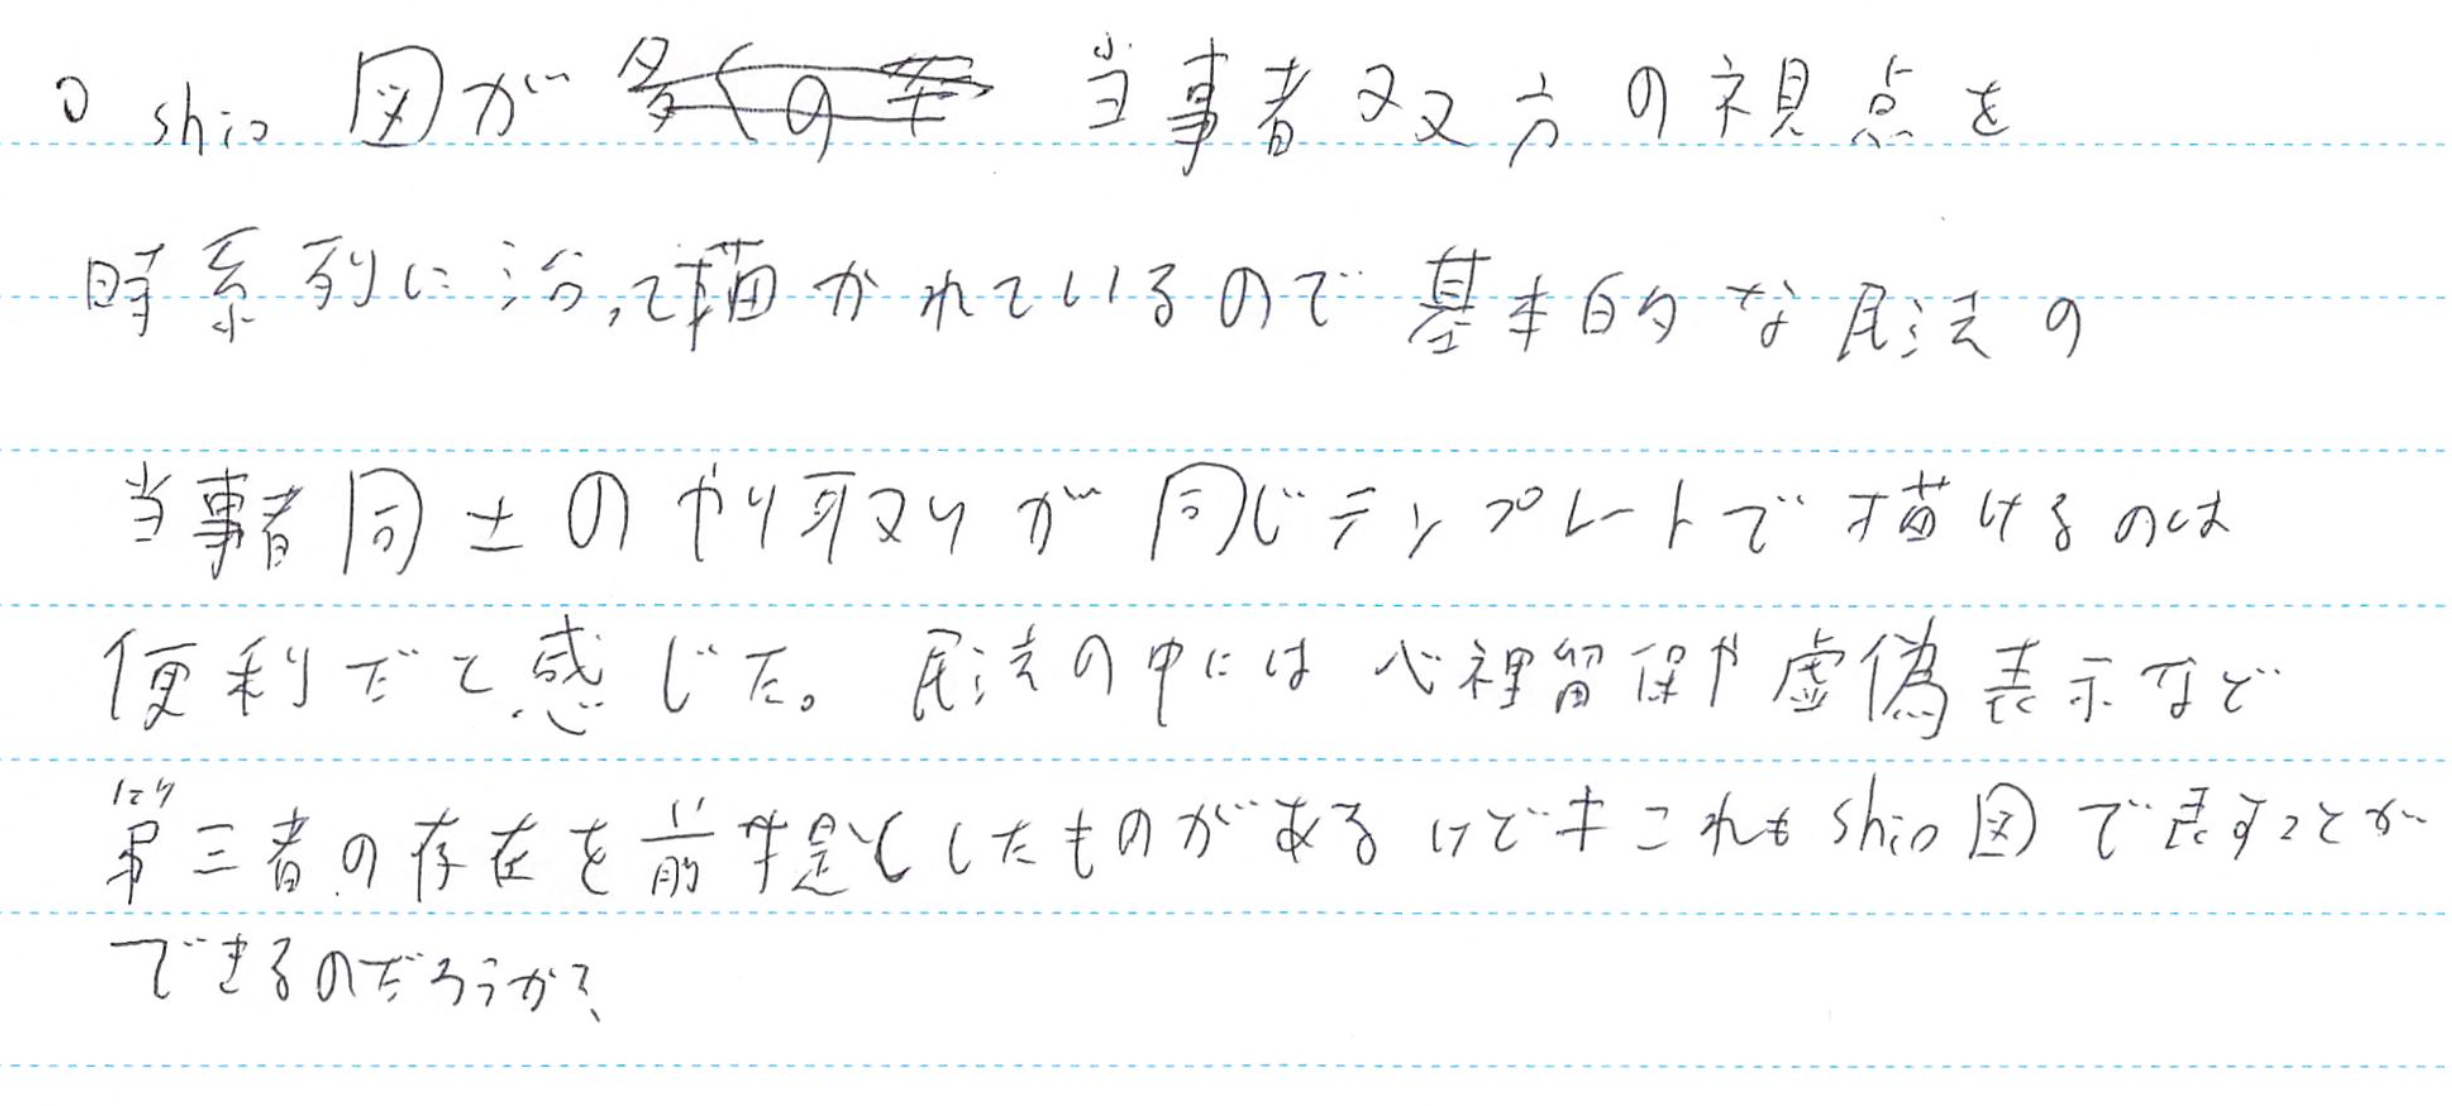 ○ shio 図が 当事者双方の視点を
時系列に沿って描かれているので基本的な民法の
当事者同士のやり取りが同じテンプレートで描けるのは
便利だと感じた。民法の中には心裡留保や虚偽表示など
第三者の存在を前提としたものがあるけどキこれもshio図で表すことが
できるのだろうか?